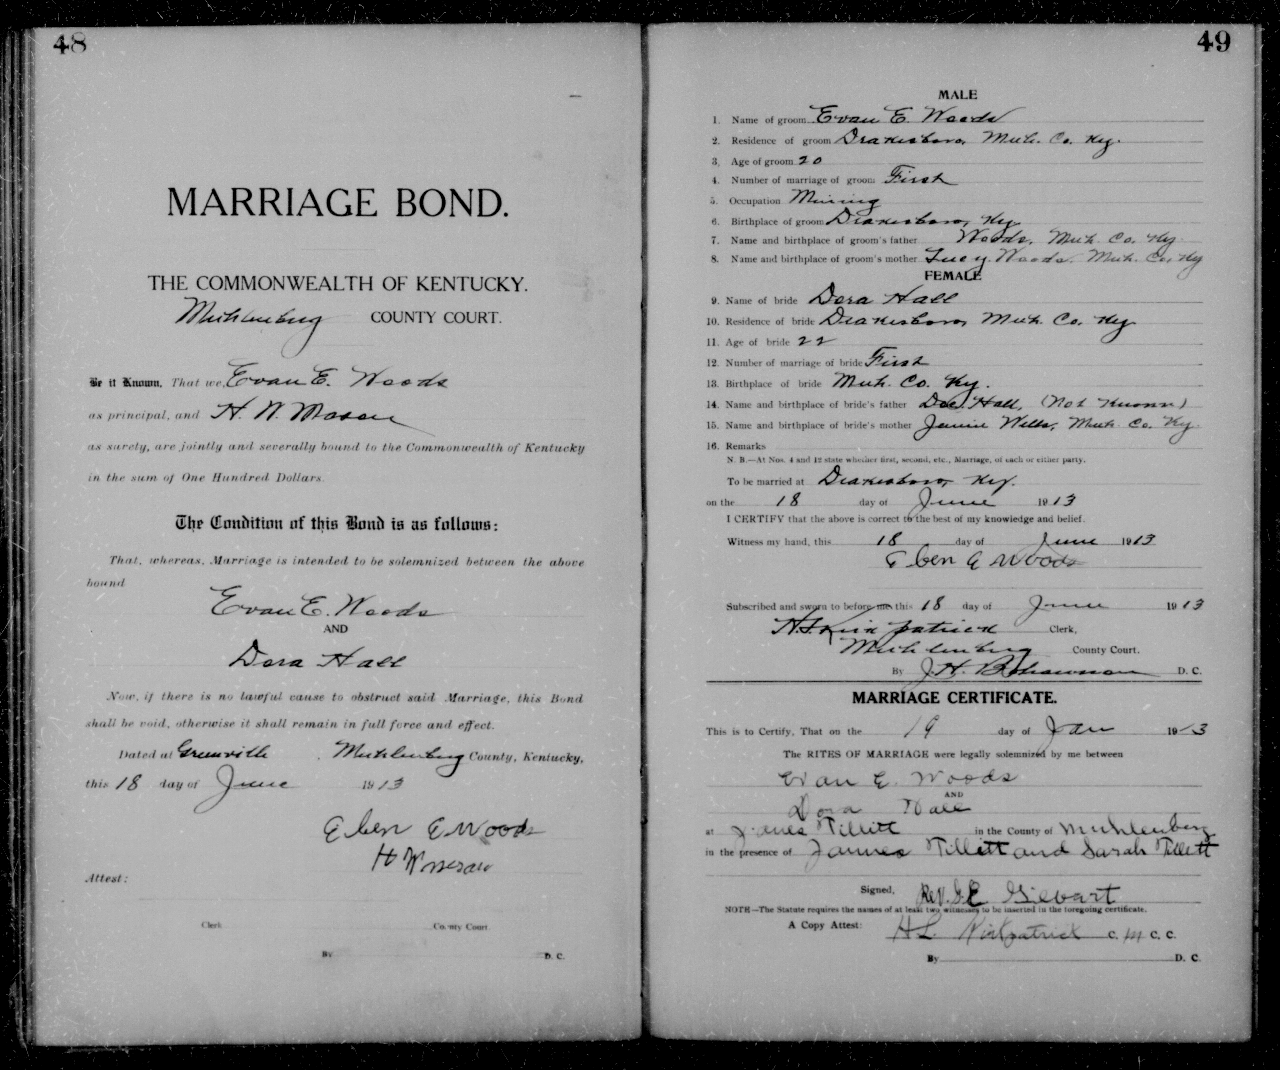 48
MARRIAGE BOND.
THE COMMONWEALTH OF KENTUCKY.
Muhlenberg COUNTY COURT.
Be it Known, That we, Evan E. Woods
as principal, and H. W. Mason
as surety, are jointly and severally bound to the Commonwealth of Kentucky
in the sum of One Hundred Dollars.
The Condition of this Bond is as follows:
That, whereas, Marriage is intended to be solemnized between the above
bound
Evan E. Woods
AND
Dora Hall
Now, if there is no lawful cause to obstruct said Marriage, this Bond
shall be void, otherwise it shall remain in full force and effect.
Dated at Greenville, Muhlenberg County, Kentucky,
this 18 day of June 1913
Eben E Woods
H W
Attest:
Clerk County Court.
By D. C.
49
MALE
1. Name of groom Evan E. Woods
2. Residence of groom Drakesboro, Muh. Co. Ky.
3. Age of groom 20
4. Number of marriage of groom First
5. Occupation Mining
6. Birthplace of groom Drakesboro, Ky
7. Name and birthplace of groom's father Woods, Muh. Co. Ky.
8. Name and birthplace of groom's mother Lucy Woods. Muh. Co. Ky
FEMALE
9. Name of bride Dora Hall
10. Residence of bride Drakesboro, Muh. Co. Ky
11. Age of bride 22
12. Number of marriage of bride First
13. Birthplace of bride Muh. Co. Ky.
14. Name and birthplace of bride's father Doc. Hall, (Not Known)
15. Name and birthplace of bride's mother Jennie Wells, Muh. Co. Ky.
16. Remarks
N. B.—At Nos. 4 and 12 state whether first, second, etc., Marriage, of each or either party.
To be married at Drakesboro, Ky.
on the 18 day of June 1913
I CERTIFY that the above is correct to the best of my knowledge and belief.
Witness my hand, this 18 day of June 1913
Eben E Woods
Subscribed and sworn to before me this 18 day of June 1913
H. L. Kirkpatrick Clerk,
Muhlenberg County Court.
By J. H. D. C.
MARRIAGE CERTIFICATE.
This is to Certify, That on the 19 day of Jun 1913
The RITES OF MARRIAGE were legally solemnized by me between
Evan E. Woods
AND
Dora Hall
at James Tillitt in the County of Muhlenberg
in the presence of James Tillett and Sarah Tillett
Signed, Rev. G. E
NOTE—The Statute requires the names of at least two witnesses to be inserted in the foregoing certificate.
A Copy Attest: H L Kirkpatrick C. M C. C.
By D. C.